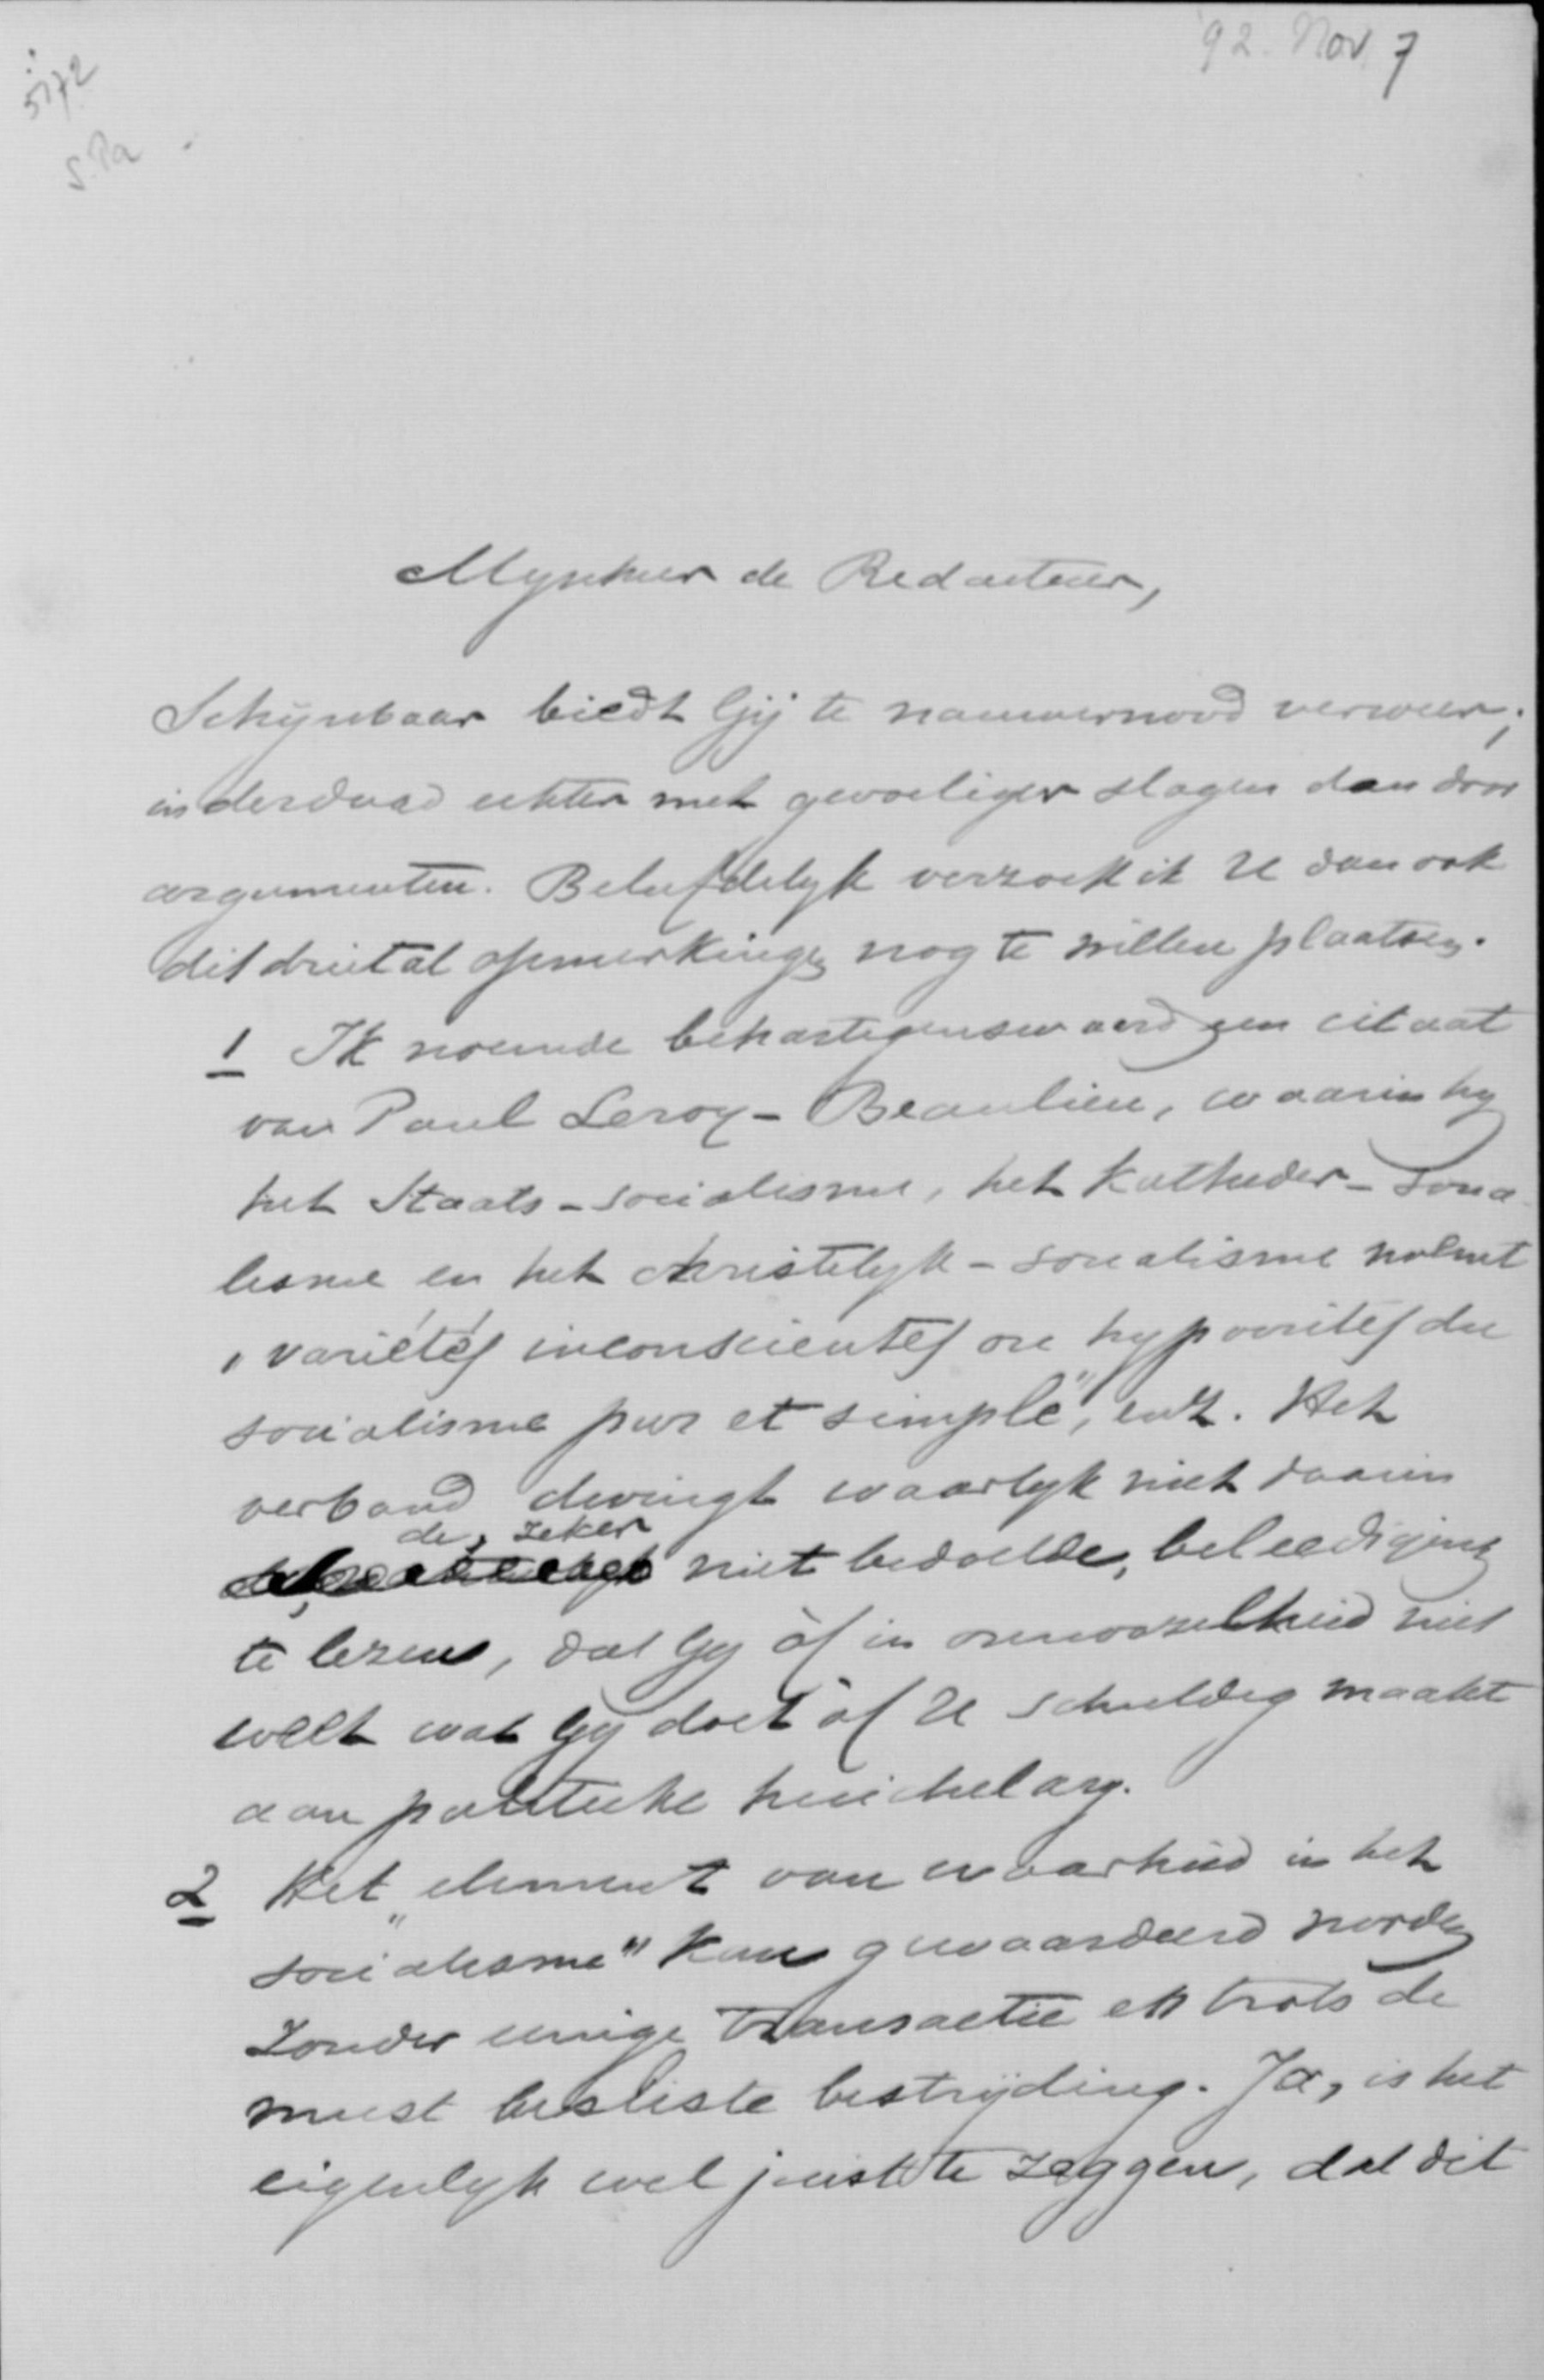 '92. Nov 7
5172
S. Pa
Mynheer de Redacteur,
Schijnbaar biedt Gij te nauwernood verweer;
inderdaad echter met gevoeliger slagen dan door
argumenten. Beleefdelyk verzoek ik U dan ook
dit drietal opmerkingen nog te willen plaatsen.
1 Ik noemde behartigenswaard een citaat
van Paul Leroy-Beaulieu, waarin hy
het Staats-socialisme, het Katheder-socia
lisme en het christelyk-socialisme noemt
„variétés inconscientes ou hypocrites du
socialisme pur et simple", enz. Het
verband dwingt waarlyk niet daarin
de, zeker
niet bedoelde, beleediging
te lezen, dat Gy òf in onnoozelheid niet
weet wat Gy doet òf U schuldig maakt
aan politieke huichelary.
2 Het „element van waarheid in het
socialisme" kan gewaardeerd worden
zonder eenige transactie en trots de
meest besliste bestrijding. Ja, is het
eigenlyk wel juist te zeggen, dat dit